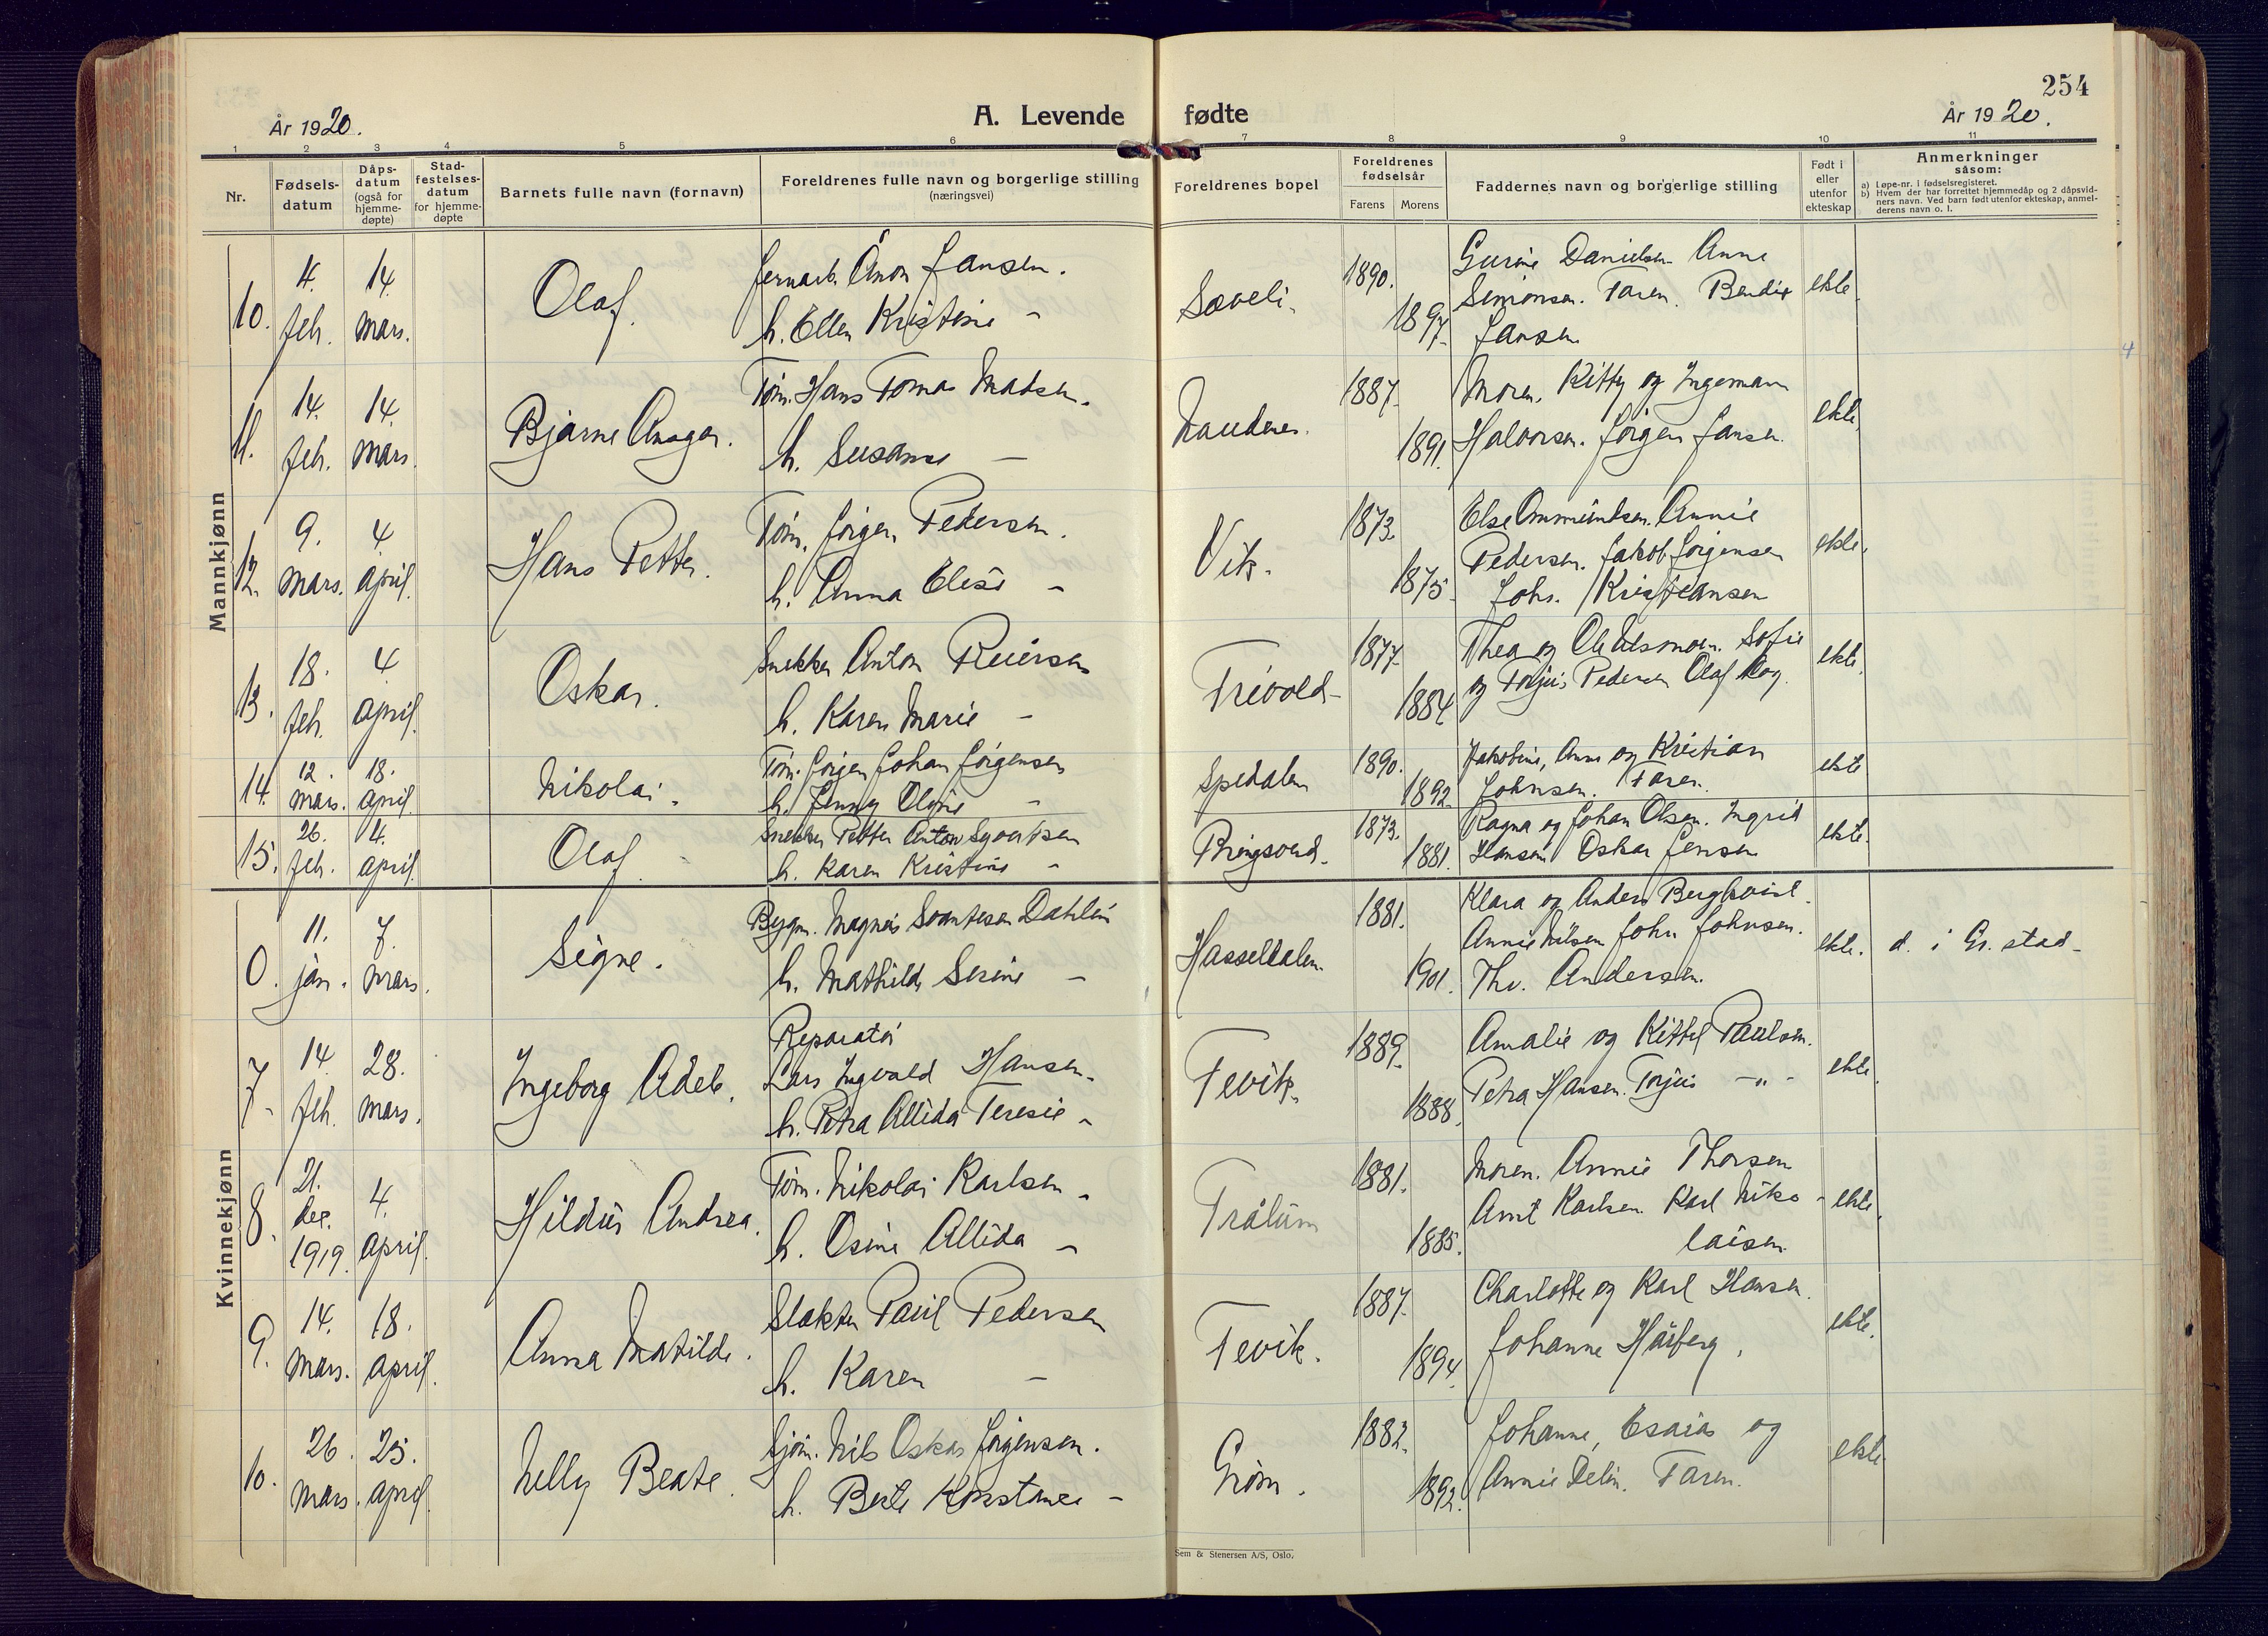 254
År 1920.
A. Levende fødte
År 1920.
1 2 3 4 5 6 7 8 9 10 11
Nr.
Fødsels-
datum
Dåps-
datum
(også for
hjemme-
døpte)
Stad-
festelses-
datum
for hjemme-
døpte
Barnets fulle navn (fornavn)
Foreldrenes fulle navn og borgerlige stilling
(næringsvei)
Foreldrenes bopel
Foreldrenes
fødselsår
Farens Morens
Faddernes navn og borgerlige stilling
Født i
eller
utenfor
ekteskap
Anmerkninger
såsom:
a) Løpe-nr. i fødselsregisteret.
b) Hvem der har forrettet hjemmedåp og 2 dåpsvid-
ners navn. Ved barn født utenfor ekteskap, anmel-
derens navn o. l.
Mannkjønn
10.
4.
feb.
14.
mars.
Olaf.
Jernarb. Anon Jansen.
h. Ellen Kristine -
Søveli.
1890.
1897.
Gurine Danielsen Anne
Simonsen. Faren. Bendix
Jansen
ekte.
11.
14.
feb.
14.
mars.
Bjarne Ansgar.
Tøm. Hans Tomas Madsen.
h. Susanne -
1887.
1891.
Moren. Kitty og Ingemann
Halvorsen. Jørgen Jansen.
ekte.
12.
9.
mars.
4
april.
Hans Petter.
Tøm. Jørgen Pedersen.
h. Anna Elise -
Vik.
1873.
1875.
Else Ommundsen. Annie
Pedersen. Jakob Jørgensen
Johs. Kristiansen
ekte.
13.
18.
feb.
4
april.
Oskar.
Snekker Anton Reiersen
h. Karen Marie -
Trevold-
1877.
1884
Thea og Ole Usmoen. Sofie
og Torjus Pedersen Olaf
ekte.
14.
12.
mars.
18.
april.
Nikolai.
Tøm. Jørgen Johan Jørgensen
h. Jenny Oline -
Spedalen
1890.
1892.
Jakobine, Anne og Kristian
Johnsen. Faren.
ekte
15.
26.
feb.
4.
april.
Olaf.
Snekker Petter Anton Syvertsen
h. Karen Kristine -
Bringsverd.
1873.
1881.
Ragna og Johan Olsen. Ingrid
Hansen Oskar Jensen
ekte.
Kvinnekjønn
11.
jan.
7.
mars.
Signe.
Bygm. Magnus Svantesen Dahlin
h. Mathilde Serine -
Hasseldalen.
1881.
1901.
Klara og Anders Bergkvist.
Annie Nilsen John Johnsen.
Thv. Andersen.
ekte.
d. i Gr. stad-
7.
14.
feb.
28.
mars.
Ingeborg Adele.
Reparatør
Lars Ingvald Hansen.
h. Petra Allida Teresie -
Fevik.
1889.
1888.
Amalie og Kittel Paulsen.
Petra Hansen. Torjus -"-
ekte.
8.
21.
des.
1919.
4.
april.
Hildur Andrea.
Tøm. Nikolai Karlsen.
h. Osine Allida -
Trålum
1881.
1885.
Moren. Annie Thorsen
Arnt Karlsen. Karl Niko-
laisen.
ekte.
9.
14.
mars.
18.
april.
Anna Matilde.
Slakter Paul Pedersen
h. Karen -
Fevik.
1887.
1894.
Charlotte og Karl Hansen.
Johanne Hårberg.
ekte.
10.
26.
mars.
25.
april.
Nelly Beate.
Sjøm. Nils Oskar Jørgensen.
h. Berte Konstance -
Grøm.
1882.
1892.
Johanne, Esaias og
Annie Delin. Faren.
ekte
Sem & Stenersen A/S, Oslo.